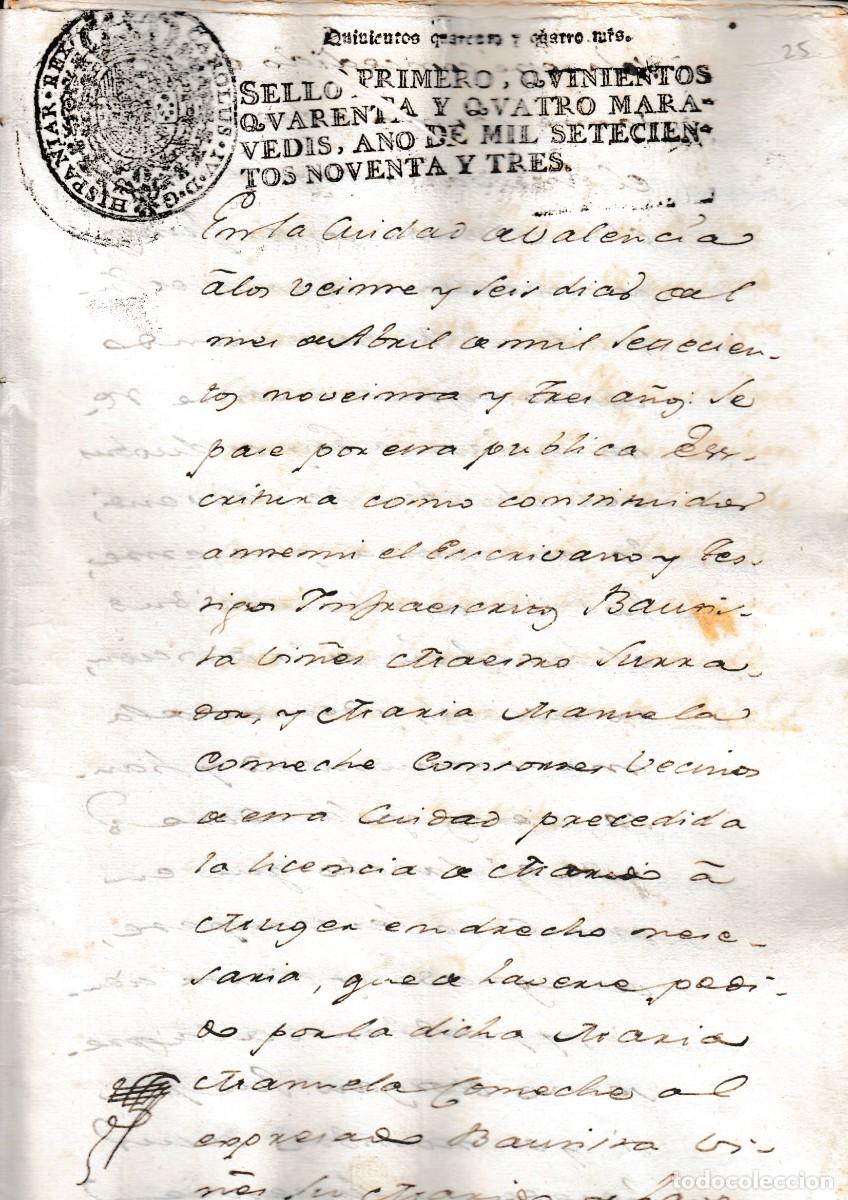 Quinientos quarenta y quatro mrs.
25
SELLO PRIMERO, QVINIENTOS
QVARENTA Y QVATRO MARA-
VEDIS, AÑO DE MIL SETECIEN-
TOS NOVENTA Y TRES.
CAROLUS·IV·D·G·HISPANIAR·REX
En la Ciudad de Valencia
â los veinte y seis dias del
mes de Abril de mil setecien-
tos noveinta y tres años: Se
pase por esta publica Ess-
critura como constituidos
ante mi el Escrivano y tes-
tigos Infraescritos Bautis-
ta Viñes Maestro Surra-
dor, y Maria Manuela
Comeche Consortes Vecinos
de esta Ciudad precedida
la licencia de Marido â
Muger en drecho nece-
saria, que de haverse pedi-
do por la dicha Maria
Manuela Comeche al
expresado Bautista Vi-
ñes su Marido
todocoleccion